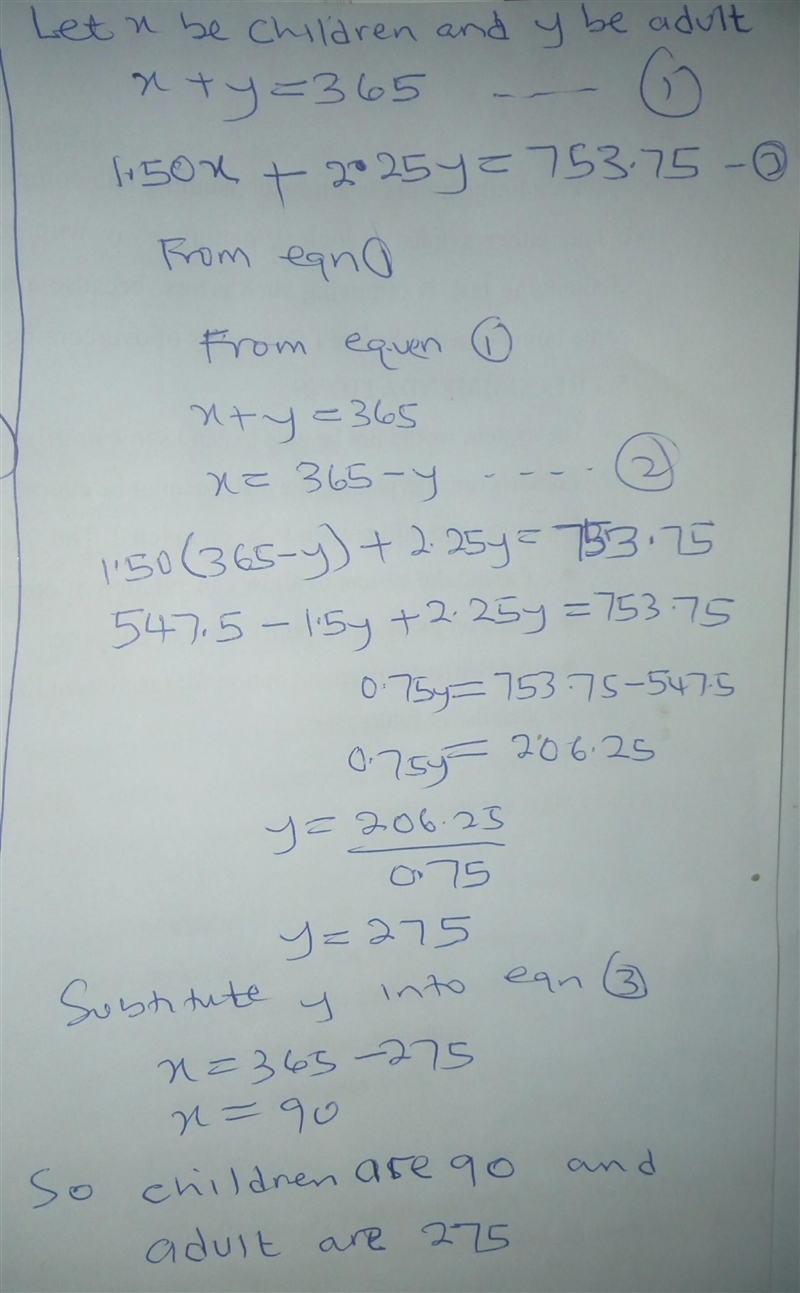 Let x be children and y be adult
x + y = 365 ---- ①
1.50x + 2.25y = 753.75 - ②
From eqn ①
From equen ①
x + y = 365
x = 365 - y ---- ②
1.50(365-y) + 2.25y = 753.75
547.5 - 1.5y + 2.25y = 753.75
0.75y = 753.75 - 547.5
0.75y = 206.25
y = 206.25
0.75
y = 275
Substitute y into eqn ③
x = 365 - 275
x = 90
So children are 90 and
adult are 275